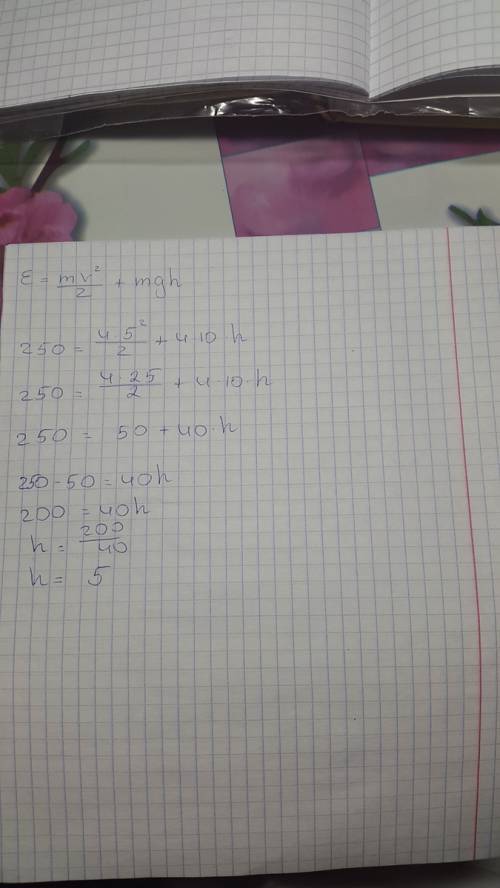 E = mv²/2 + mgh
250 = 4·5²/2 + 4·10·h
250 = 4·25/2 + 4·10·h
250 = 50 + 40·h
250 - 50 = 40h
200 = 40h
h = 200/40
h = 5